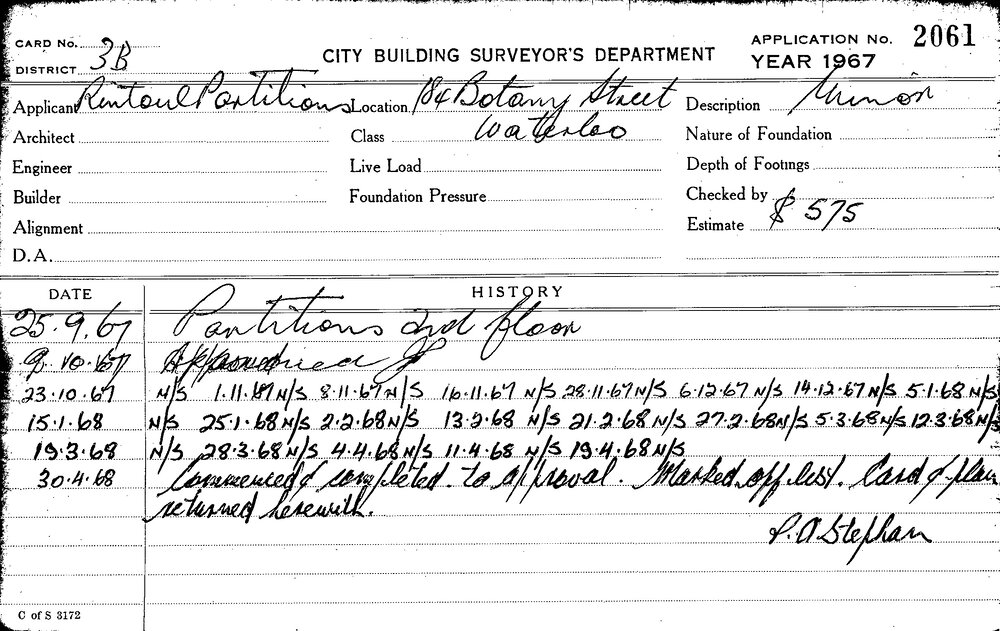 CARD No. CITY BUILDING SURVEYOR'S DEPARTMENT APPLICATION No. 2061
DISTRICT 3B YEAR 1967
Applicant Rintoul Partitions Location 184 Botany Street Description Minor
Architect Class Waterloo Nature of Foundation
Engineer Live Load Depth of Footings
Builder Foundation Pressure Checked by
Alignment Estimate $ 575
D.A.
DATE HISTORY
25.9.67 Partitions 2nd floor
9.10.67 Approved
23.10.67 N/S 1.11.67 N/S 8.11.67 N/S 16.11.67 N/S 28.11.67 N/S 6.12.67 N/S 14.12.67 N/S 5.1.68 N/S
15.1.68 N/S 25.1.68 N/S 2.2.68 N/S 13.2.68 N/S 21.2.68 N/S 27.2.68 N/S 5.3.68 N/S 12.3.68 N/S
19.3.68 N/S 28.3.68 N/S 4.4.68 N/S 11.4.68 N/S 19.4.68 N/S
30.4.68 Commenced & completed to approval. Marked off list. Card & plan
returned herewith.
P. A Stephan
C of S 3172